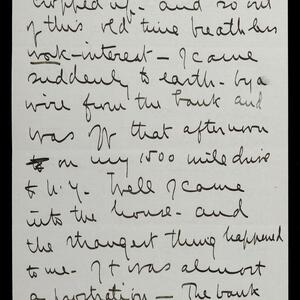 cropped up - and so out
of this old time breathless
work-interest - I came
suddenly to earth - by a
wire from the bank and
was off that afternoon
on my 1500 mile drive
to N.Y. Well I came
into the house - and
the strangest thing happened
to me - It was almost
a prostration - The bank